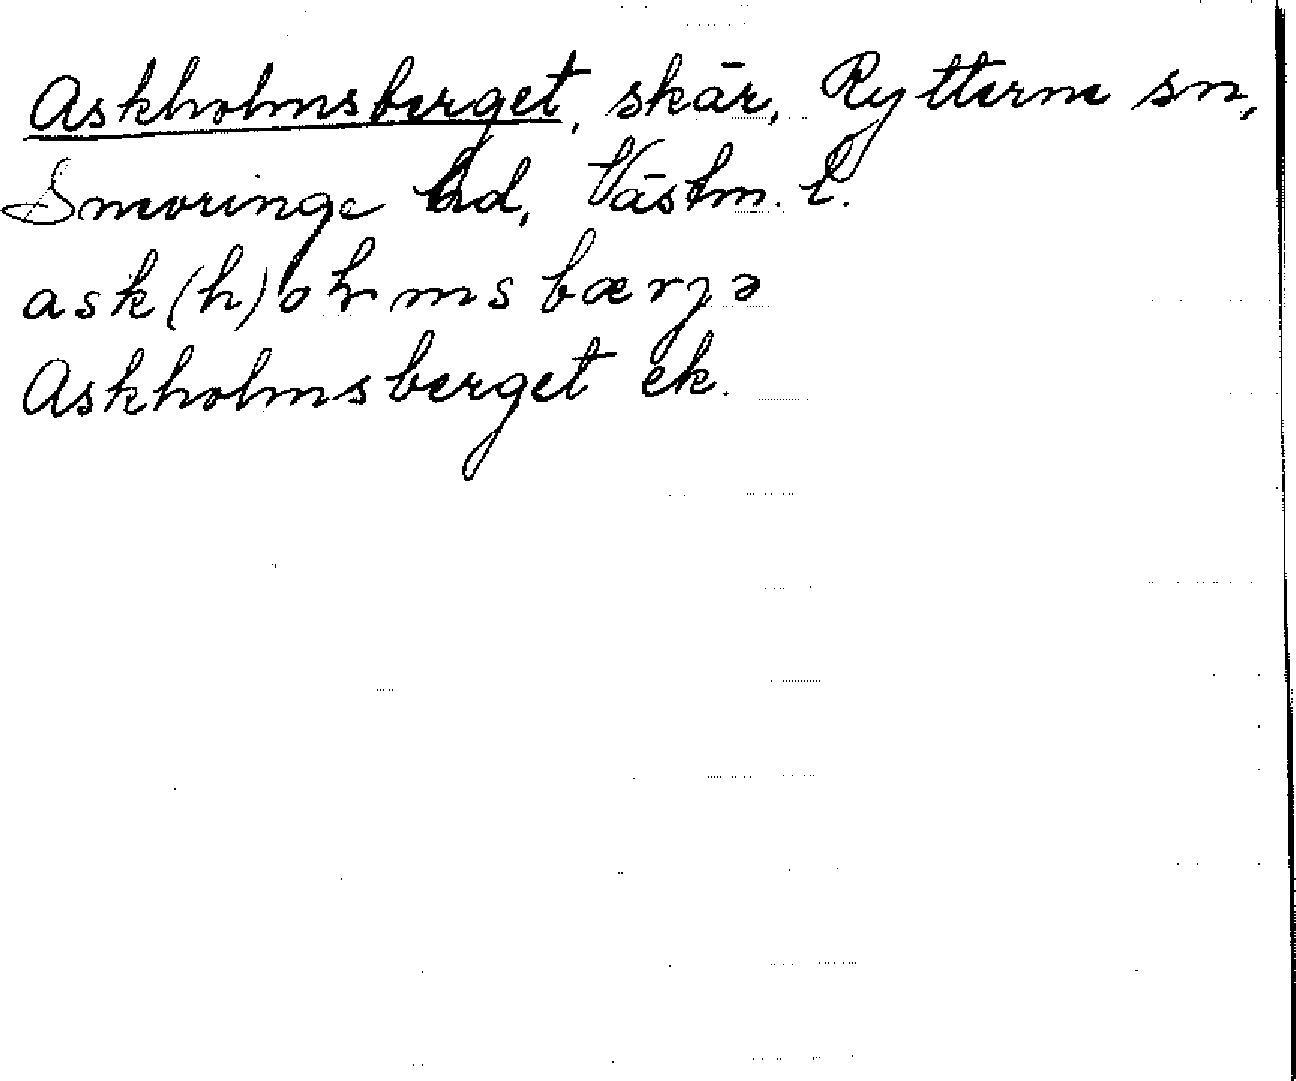 Askholmsberget, skär, Rytterne sn,
Snevringe hd, Västm. l.
ask(h)olmsbærjə
Askholmsberget ek.